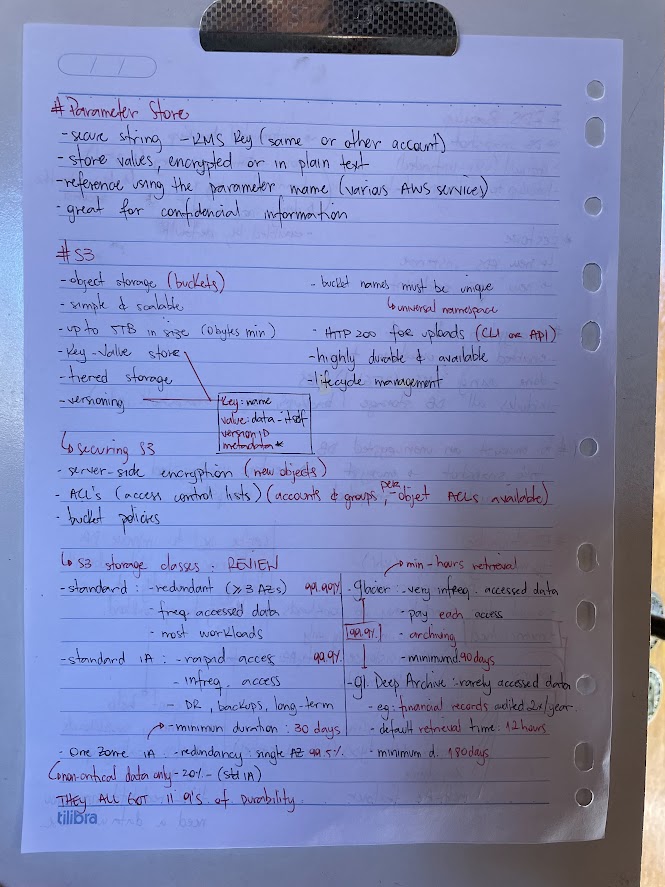 # Parameter Store
- secure string - KMS Key (same or other account)
- store values, encrypted or in plain text
- reference using the parameter name (various AWS services)
- great for confidencial information
# S3
- object storage (buckets)
- simple & scalable
- up to 5TB in size (0 bytes min)
- Key-Value store
- tiered storage
- versioning
Key: name
value: data itself
version ID
metadata*
- bucket names must be unique
↳ universal namespace
- HTTP 200 for uploads (CLI or API)
- highly durable & available
- lifecycle management
↳ securing S3
- server-side encryption (new objects)
- ACL's (access control lists) (accounts & groups, per-objet ACLs available)
- bucket policies
↳ S3 storage classes: REVIEW
- standard: - redundant (≥3 AZs) 99.99%
- freq. accessed data
- most workloads
- standard IA: - rapid access 99.9%
- infreq. access
- DR, backups, long-term
- minimum duration: 30 days
- One Zone IA - redundancy: single AZ 99.5%
non-critical data only - 20% - (std IA)
THEY ALL GOT 11 9's of Durability
min-hours retrieval
- glacier: - very infreq. accessed data
- pay each access
99.9%
- archiving
- minimum d. 90 days
- gl. Deep Archive: - rarely accessed data
- eg: financial records audited 2x/year
- default retrieval time: 12 hours
- minimum d. 180 days
tilibra